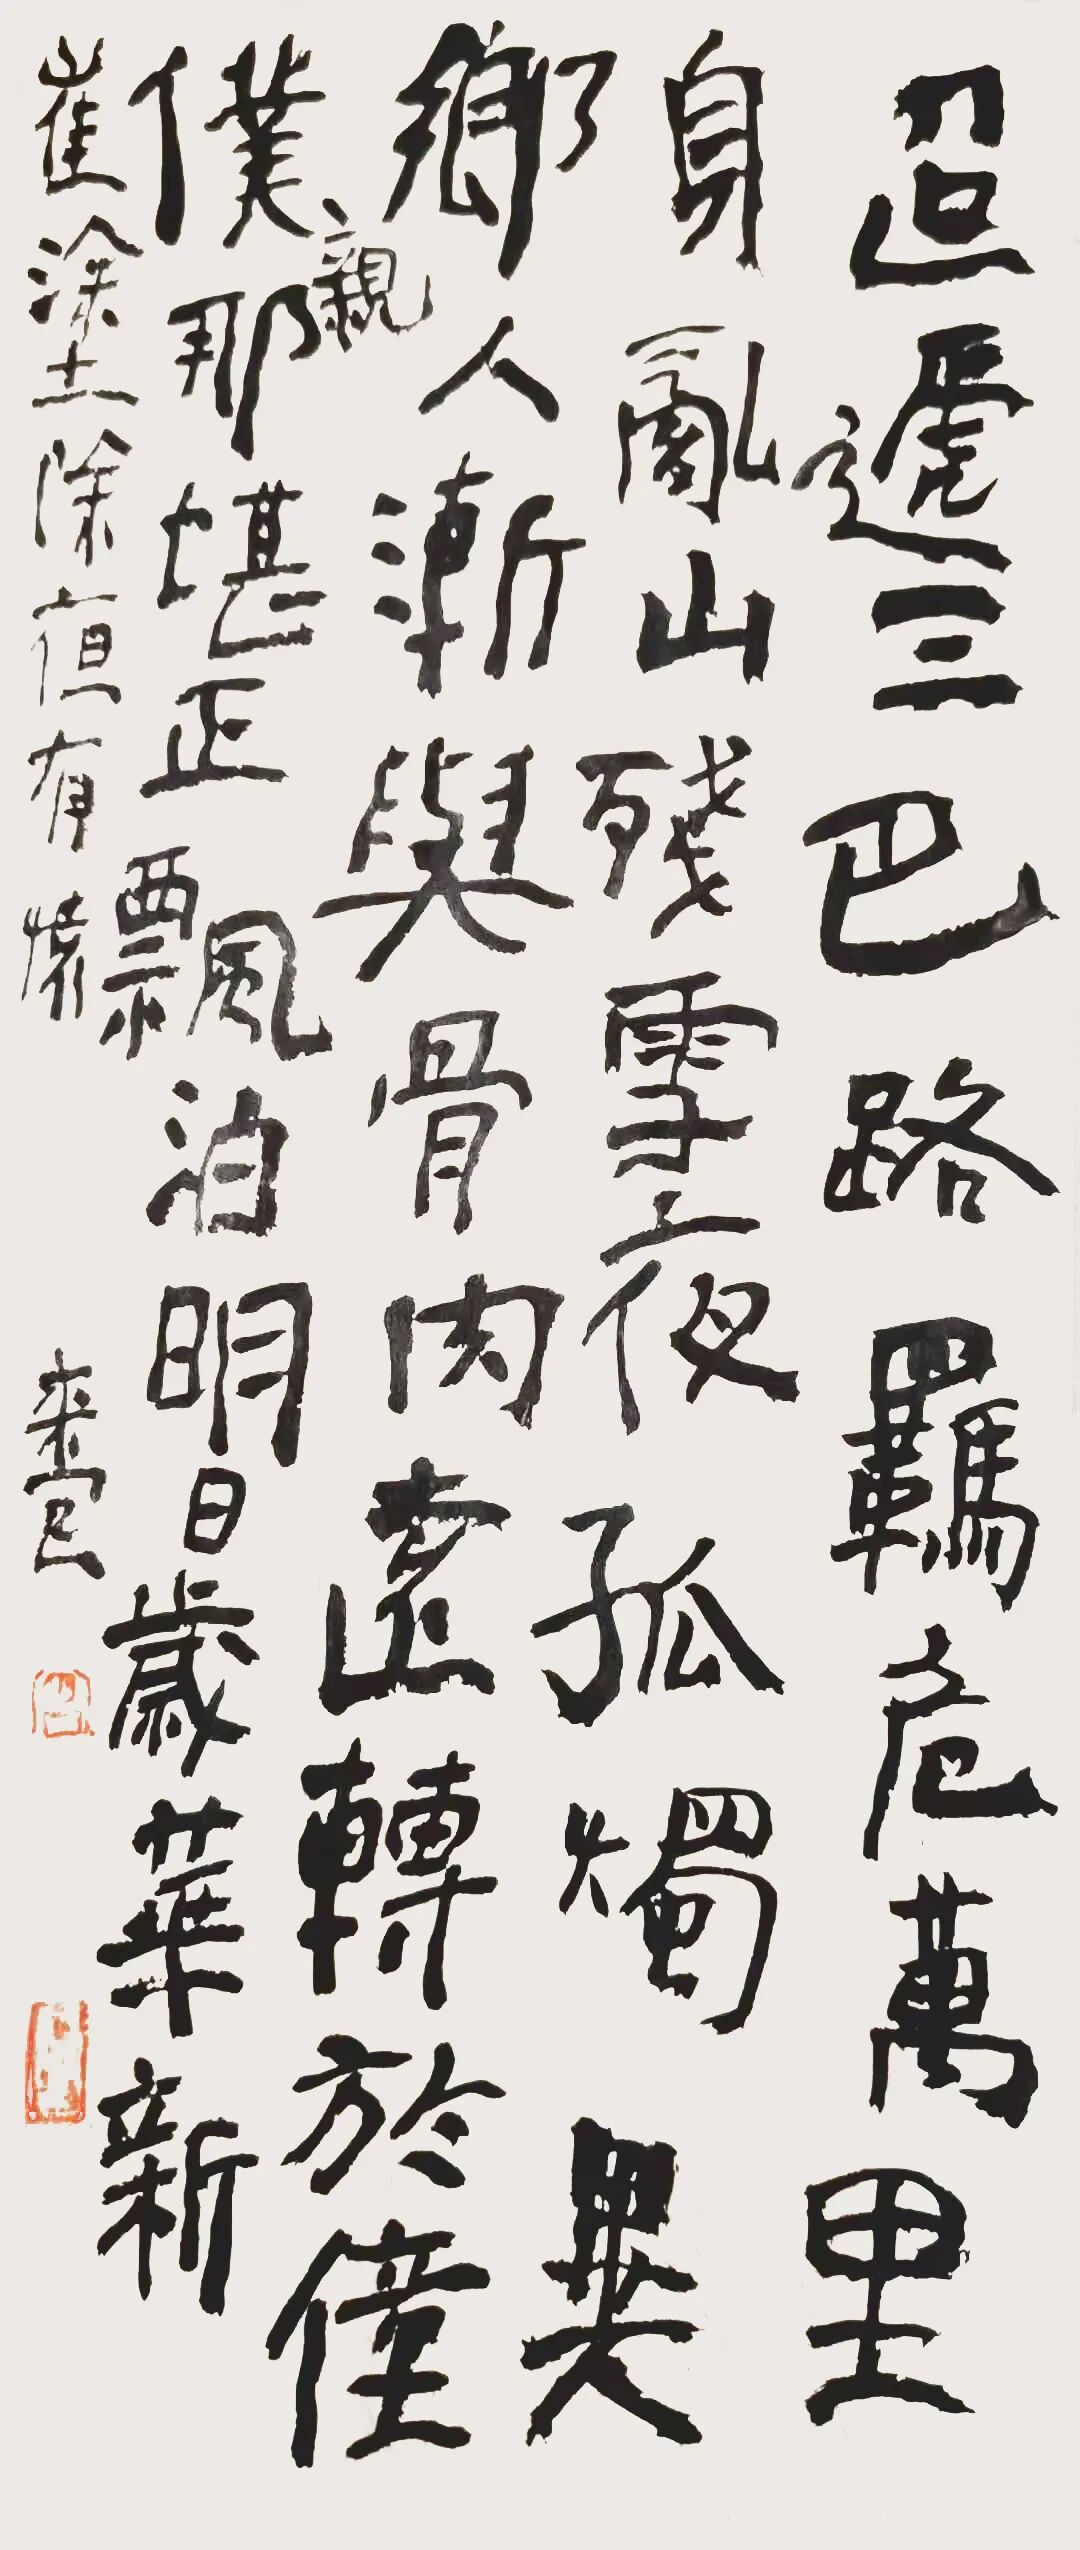 迢遞三巴路羈危萬里
身亂山殘雪夜孤燭異
鄉人漸與骨肉遠轉於僮
僕親那堪正飄泊明日歲華新
崔塗除夜有懷